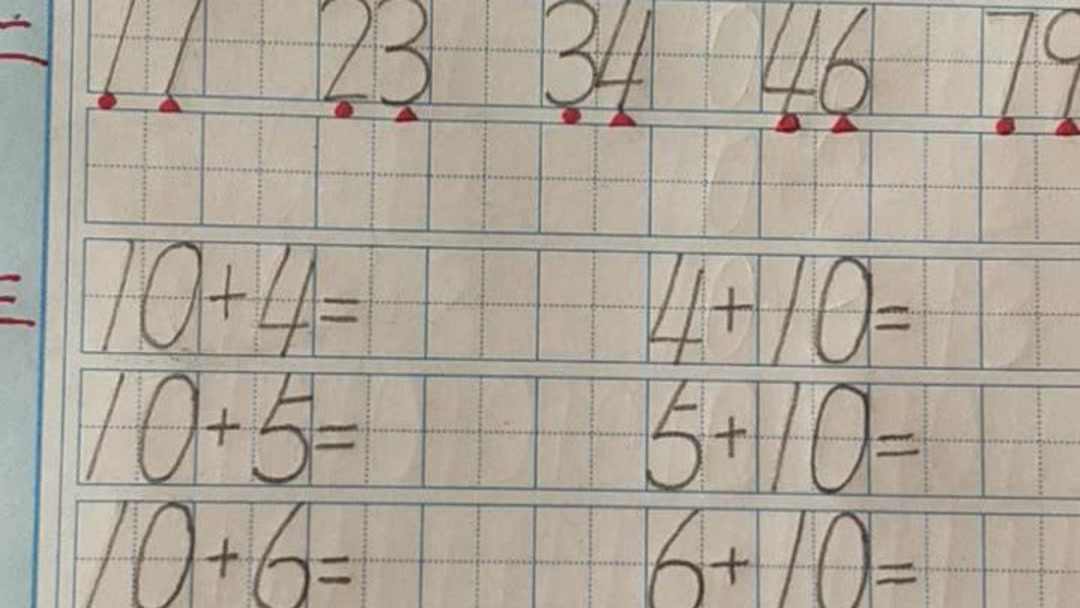 11 23 34 46 79
10+4= 4+10=
10+5= 5+10=
10+6= 6+10=